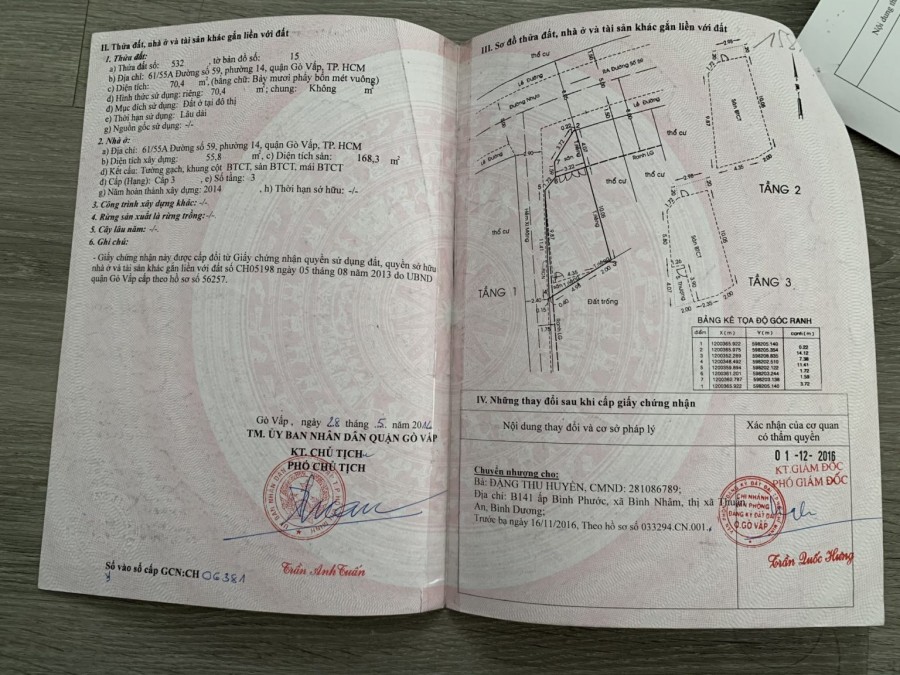 II. Thửa đất, nhà ở và tài sản khác gắn liền với đất
1. Thửa đất:
a) Thửa đất số: 532 , tờ bản đồ số: 15
b) Địa chỉ: 61/55A Đường số 59, phường 14, quận Gò Vấp, TP. HCM
c) Diện tích: 70,4 m², (bằng chữ: Bảy mươi phẩy bốn mét vuông)
d) Hình thức sử dụng: riêng: 70,4 m²; chung: Không m²
đ) Mục đích sử dụng: Đất ở tại đô thị
e) Thời hạn sử dụng: Lâu dài
g) Nguồn gốc sử dụng: -/-
2. Nhà ở:
a) Địa chỉ: 61/55A Đường số 59, phường 14, quận Gò Vấp, TP. HCM
b) Diện tích xây dựng: 55,8 m², c) Diện tích sàn: 168,3 m²
d) Kết cấu: Tường gạch, khung cột BTCT, sàn BTCT, mái BTCT
đ) Cấp (Hạng): Cấp 3 , e) Số tầng: 3
g) Năm hoàn thành xây dựng: 2014 , h) Thời hạn sở hữu: -/-
3. Công trình xây dựng khác: -/-
4. Rừng sản xuất là rừng trồng: -/-
5. Cây lâu năm: -/-
6. Ghi chú:
- Giấy chứng nhận này được cấp đổi từ Giấy chứng nhận quyền sử dụng đất, quyền sở hữu
nhà ở và tài sản khác gắn liền với đất số CH05198 ngày 05 tháng 08 năm 2013 do UBND
quận Gò Vấp cấp theo hồ sơ số 56257.
Gò Vấp, ngày 28 tháng 5 năm 2014
TM. ỦY BAN NHÂN DÂN QUẬN GÒ VẤP
KT. CHỦ TỊCH
PHÓ CHỦ TỊCH
Trần Anh Tuấn
Số vào sổ cấp GCN: CH 06381
III. Sơ đồ thửa đất, nhà ở và tài sản khác gắn liền với đất
thổ cư
RA Đường Số 59
Lề Đường
Đường Nhựa
Lề Đường
Lề Đường
thổ cư
Ranh LG
sân
3.22
thổ cư
thổ cư
Hẻm Xi Măng
10.05
Đất trống
TẦNG 1
Sàn BTCT
9.87
10.05
4.35
2.00
TẦNG 2
Sàn BTCT
10.05
5.80
4.07
2.00
2.35
2.00
TẦNG 3
BẢNG KÊ TỌA ĐỘ GÓC RANH
điểm X (m) Y (m) cạnh (m)
1 1200365.922 598205.140
0.22
14.12
7.36
11.61
1.72
1.59
1 1200365.922 598205.140 3.72
IV. Những thay đổi sau khi cấp giấy chứng nhận
Nội dung thay đổi và cơ sở pháp lý
Xác nhận của cơ quan
có thẩm quyền
Chuyển nhượng cho:
Bà: ĐẶNG THU HUYỀN, CMND: 281086789;
Địa chỉ: B141 ấp Bình Phước, xã Bình Nhâm, thị xã Thuận
An, Bình Dương;
Trước bạ ngày 16/11/2016, Theo hồ sơ số 033294.CN.001.
01 -12- 2016
KT.GIÁM ĐỐC
PHÓ GIÁM ĐỐC
CHI NHÁNH
VĂN PHÒNG
ĐĂNG KÝ ĐẤT ĐAI
Q.GÒ VẤP
Trần Quốc Hưng
Nội dung